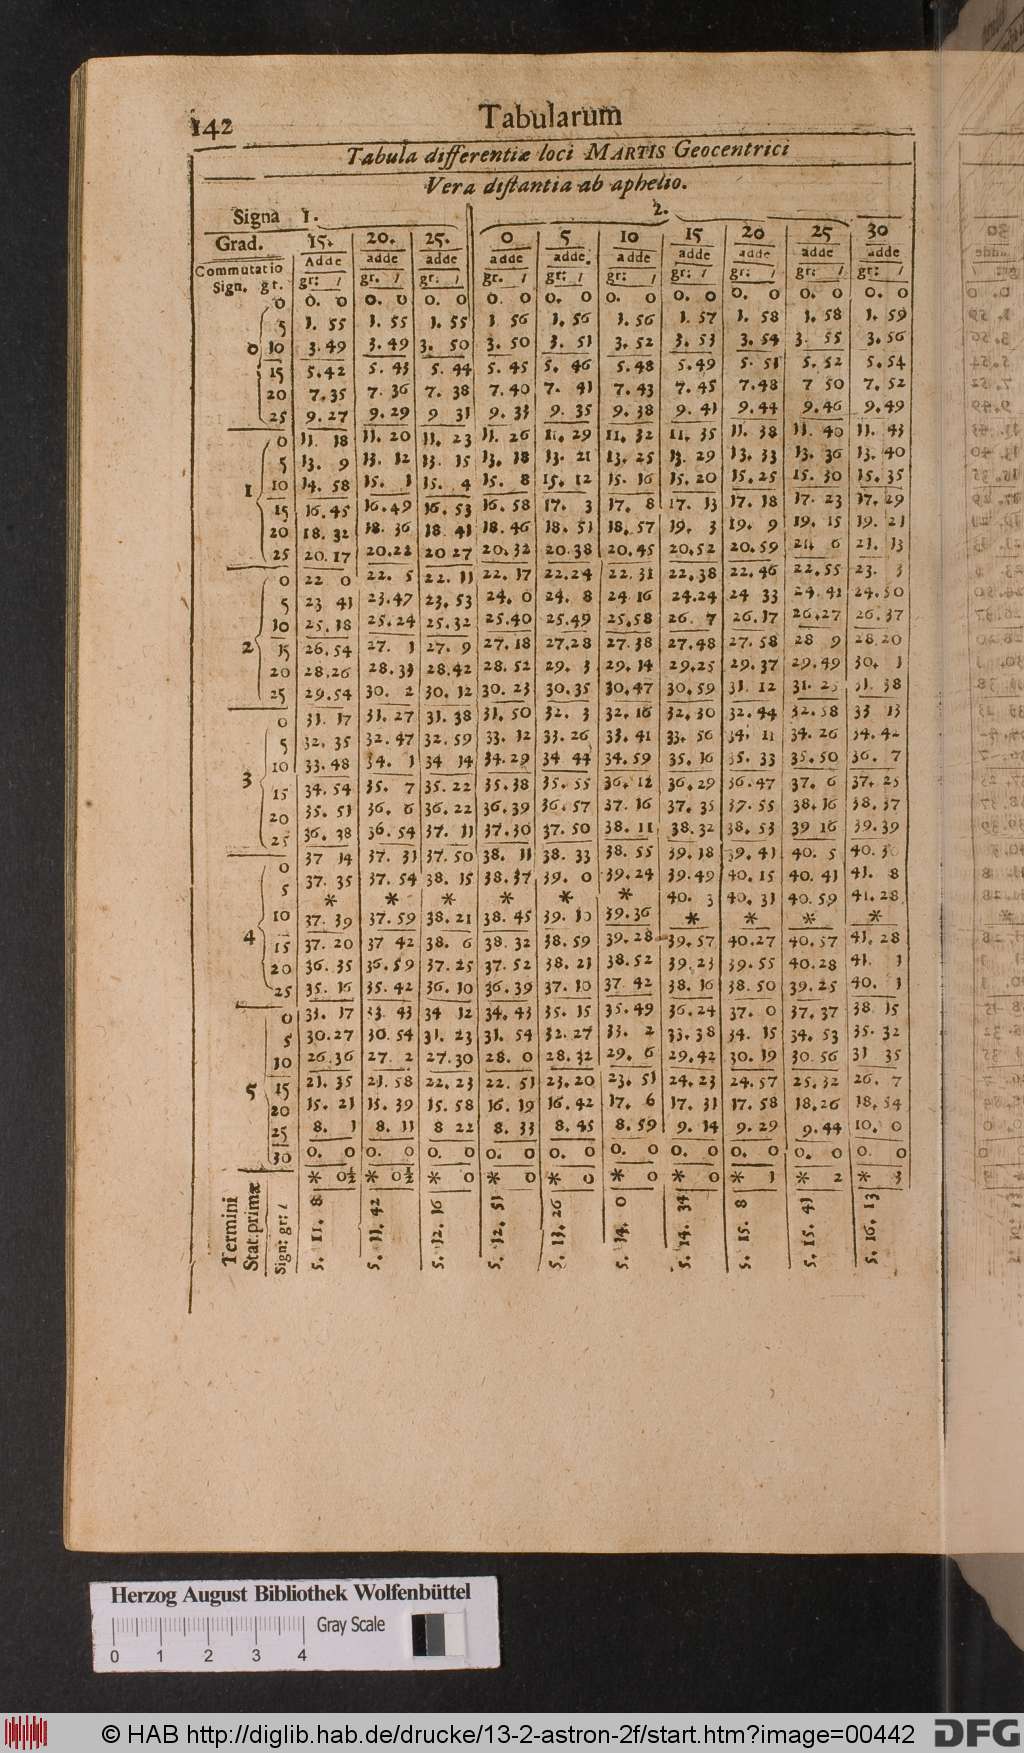 142 Tabularum
Tabula differentiæ loci MARTIS Geocentrici
Vera distantia ab aphelio.
Signa 1. 2.
Grad. 15. 20. 25. 0 5 10 15 20 25 30
Commutatio Adde adde adde adde adde. adde adde adde adde adde
Sign. gr. gr: / gr. / gr: / gr. / gr: / gr: / gr: / gr: / gr: / gr: /
0 0. 0 0. 0 0. 0 0. 0 0. 0 0. 0 0. 0 0. 0 0. 0 0. 0
5 1. 55 1. 55 1. 55 1 56 1. 56 1. 56 1. 57 1. 58 1. 58 1. 59
0 10 3.49 3.49 3. 50 3. 50 3. 51 3. 52 3. 53 3. 54 3. 55 3. 56
15 5.42 5. 43 5. 44 5. 45 5. 46 5.48 5.49 5. 51 5. 52 5. 54
20 7.35 7. 36 7. 38 7.40 7. 41 7. 43 7. 45 7.48 7 50 7. 52
25 9.27 9.29 9 31 9. 33 9. 35 9. 38 9. 41 9.44 9.46 9.49
0 11. 18 11. 20 11. 23 11. 26 11. 29 11. 32 11. 35 11. 38 11. 40 11. 43
5 13. 9 13. 12 13. 15 13. 18 13. 21 13. 25 13. 29 13. 33 13. 36 13. 40
1 10 14. 58 15. 1 15. 4 15. 8 15. 12 15. 16 15. 20 15. 25 15. 30 15. 35
15 16.45 16.49 16. 53 16. 58 17. 3 17. 8 17. 13 17. 18 17. 23 17. 29
20 18. 32 18. 36 18. 41 18. 46 18. 51 18. 57 19. 3 19. 9 19. 15 19. 21
25 20. 17 20.22 20 27 20. 32 20.38 20.45 20.52 20.59 21 6 21. 13
0 22 0 22. 5 22. 11 22. 17 22.24 22. 31 22.38 22.46 22.55 23. 3
5 23 41 23.47 23. 53 24. 0 24. 8 24 16 24.24 24 33 24.41 24.50
10 25.18 25.24 25.32 25.40 25.49 25.58 26. 7 26.17 26.27 26.37
2 15 26.54 27. 1 27. 9 27.18 27.28 27.38 27.48 27.58 28 9 28.20
20 28.26 28.33 28.42 28. 52 29. 3 29. 14 29.25 29.37 29.49 30. 1
25 29.54 30. 2 30. 12 30. 23 30.35 30.47 30.59 31. 12 31. 25 31. 38
0 31. 17 31. 27 31. 38 31. 50 32. 3 32. 16 32. 30 32. 44 32. 58 33 13
5 32. 35 32. 47 32. 59 33. 12 33. 26 33. 41 33. 56 34. 11 34. 26 34. 42
3 10 33.48 34. 1 34 14 34.29 34 44 34.59 35. 16 35. 33 35.50 36. 7
15 34. 54 35. 7 35. 22 35.38 35. 55 36. 12 36.29 36.47 37. 6 37. 25
20 35. 51 36. 6 36. 22 36.39 36. 57 37. 16 37. 35 37. 55 38.16 38. 37
25 36. 38 36. 54 37. 11 37.30 37. 50 38. 11 38.32 38. 53 39 16 39.39
0 37 14 37. 31 37. 50 38. 11 38. 33 38. 55 39.18 39. 41 40. 5 40. 30
5 37. 35 37. 54 38. 15 38.37 39. 0 39.24 39.49 40. 15 40. 41 41. 8
* * * * * * 40. 3 40. 31 40. 59 41.28
10 37. 39 37. 59 38. 21 38. 45 39. 10 39.36 * * * *
4 15 37. 20 37 42 38. 6 38. 32 38. 59 39.28 39. 57 40.27 40. 57 41. 28
20 36. 35 36. 59 37. 25 37. 52 38. 21 38. 52 39. 23 39. 55 40.28 41. 1
25 35. 16 35. 42 36. 10 36.39 37. 10 37 42 38. 16 38. 50 39.25 40. 1
0 33. 17 33. 43 34 12 34. 43 35. 15 35. 49 36.24 37. 0 37. 37 38 15
5 30.27 30 54 31. 23 31. 54 32. 27 33. 2 33.38 34. 15 34. 53 35. 32
10 26.36 27. 2 27.30 28. 0 28. 32 29. 6 29.42 30. 19 30 56 31 35
5 15 21. 35 21.58 22. 23 22. 51 23.20 23. 51 24.23 24.57 25.32 26. 7
20 15. 21 15. 39 15. 58 16. 19 16. 42 17. 6 17. 31 17. 58 18.26 18.54
25 8. 1 8. 11 8 22 8. 33 8. 45 8. 59 9. 14 9. 29 9. 44 10. 0
30 0. 0 0. 0 0. 0 0. 0 0. 0 0. 0 0. 0 0. 0 0. 0 0. 0
* 0½ * 0½ * 0 * 0 * 0 * 0 * 0 * 1 * 2 * 3
Termini
Stat: primæ
Sign: gr: /
5. 11. 8
5. 11. 42
5. 12. 16
5. 12. 51
5. 13. 26
5. 14. 0
5. 14. 34
5. 15. 8
5. 15. 41
5. 16. 13
Herzog August Bibliothek Wolfenbüttel
Gray Scale
0 1 2 3 4
© HAB http://diglib.hab.de/drucke/13-2-astron-2f/start.htm?image=00442 DFG